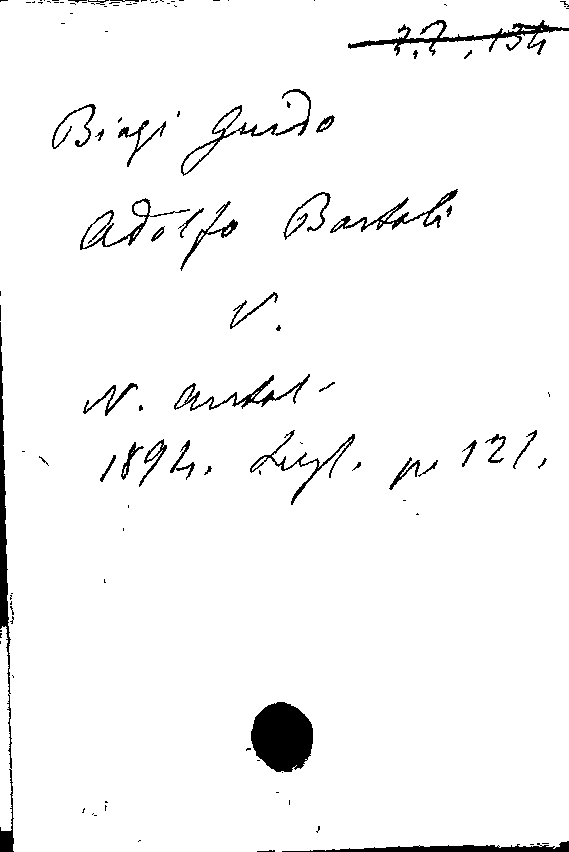 Biagi Guido
Adolfo Bartoli
V.
N. Antol-
1894. Lugl. p. 121.